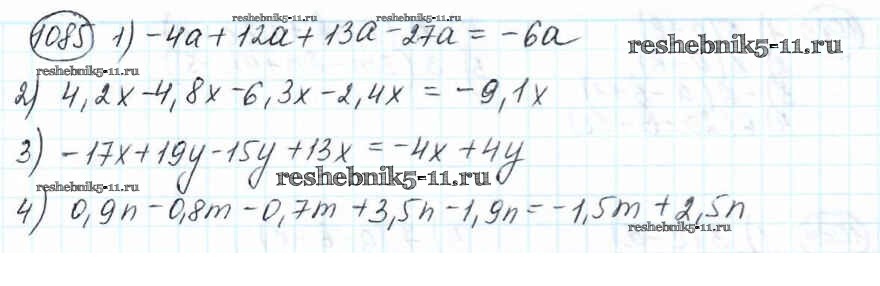 reshebnik5-11.ru
reshebnik5-11.ru
1085 1) -4a + 12a + 13a - 27a = -6a
reshebnik5-11.ru
reshebnik5-11.ru
2) 4,2x - 4,8x - 6,3x - 2,4x = -9,1x
3) -17x + 19y - 15y + 13x = -4x + 4y
reshebnik5-11.ru
reshebnik5-11.ru
4) 0,9n - 0,8m - 0,7m + 3,5n - 1,9n = -1,5m + 2,5n
reshebnik5-11.ru